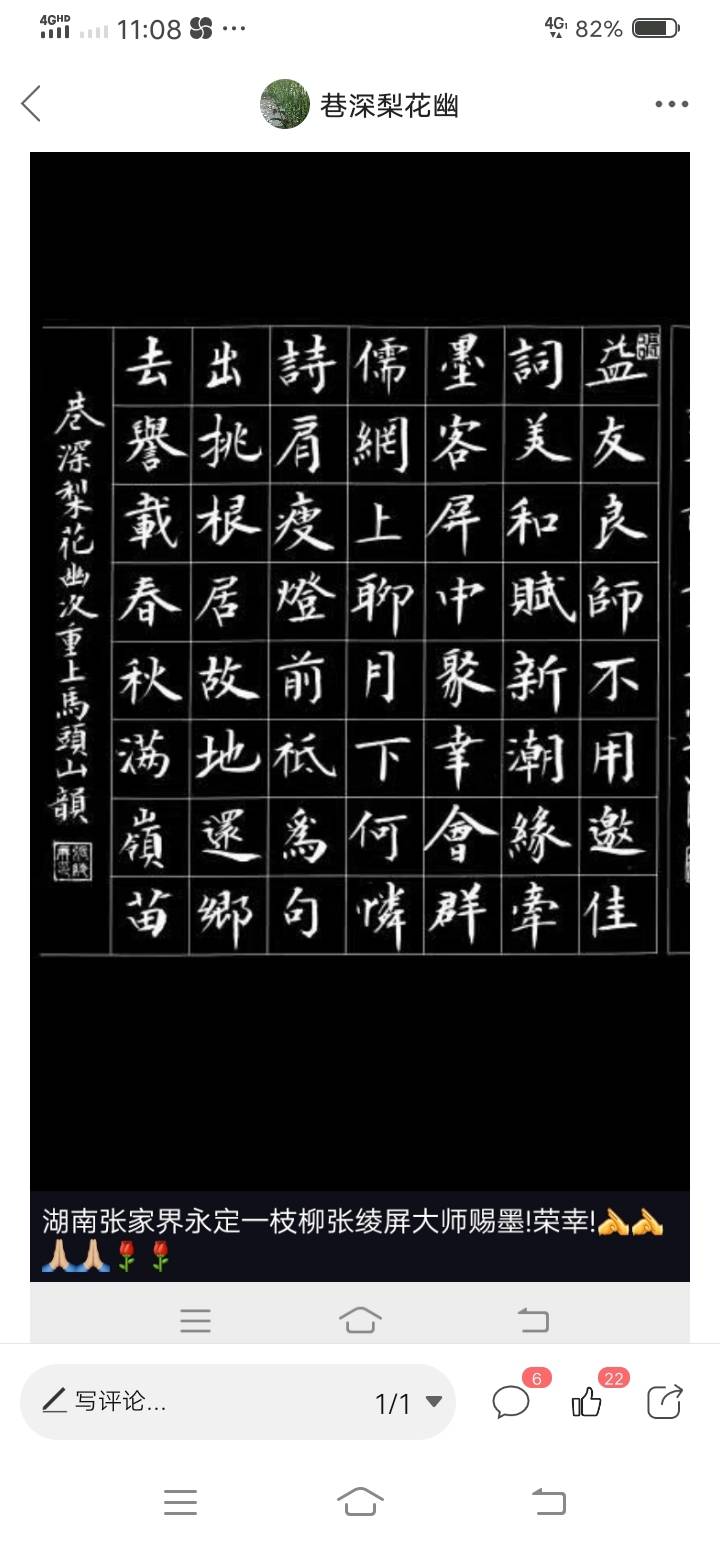 4GHD 11:08 ... 4G 82%
巷深梨花幽
益友良師不用邀佳
詞美和賦新潮緣牽
墨客屏中聚幸會群
儒網上聊月下何憐
詩肩瘦燈前祗爲句
出挑根居故地還鄉
去譽載春秋滿嶺苗
巷深梨花幽次重上馬頭山韻
湖南张家界永定一枝柳张绫屏大师赐墨!荣幸!
写评论...
1/1
6
22